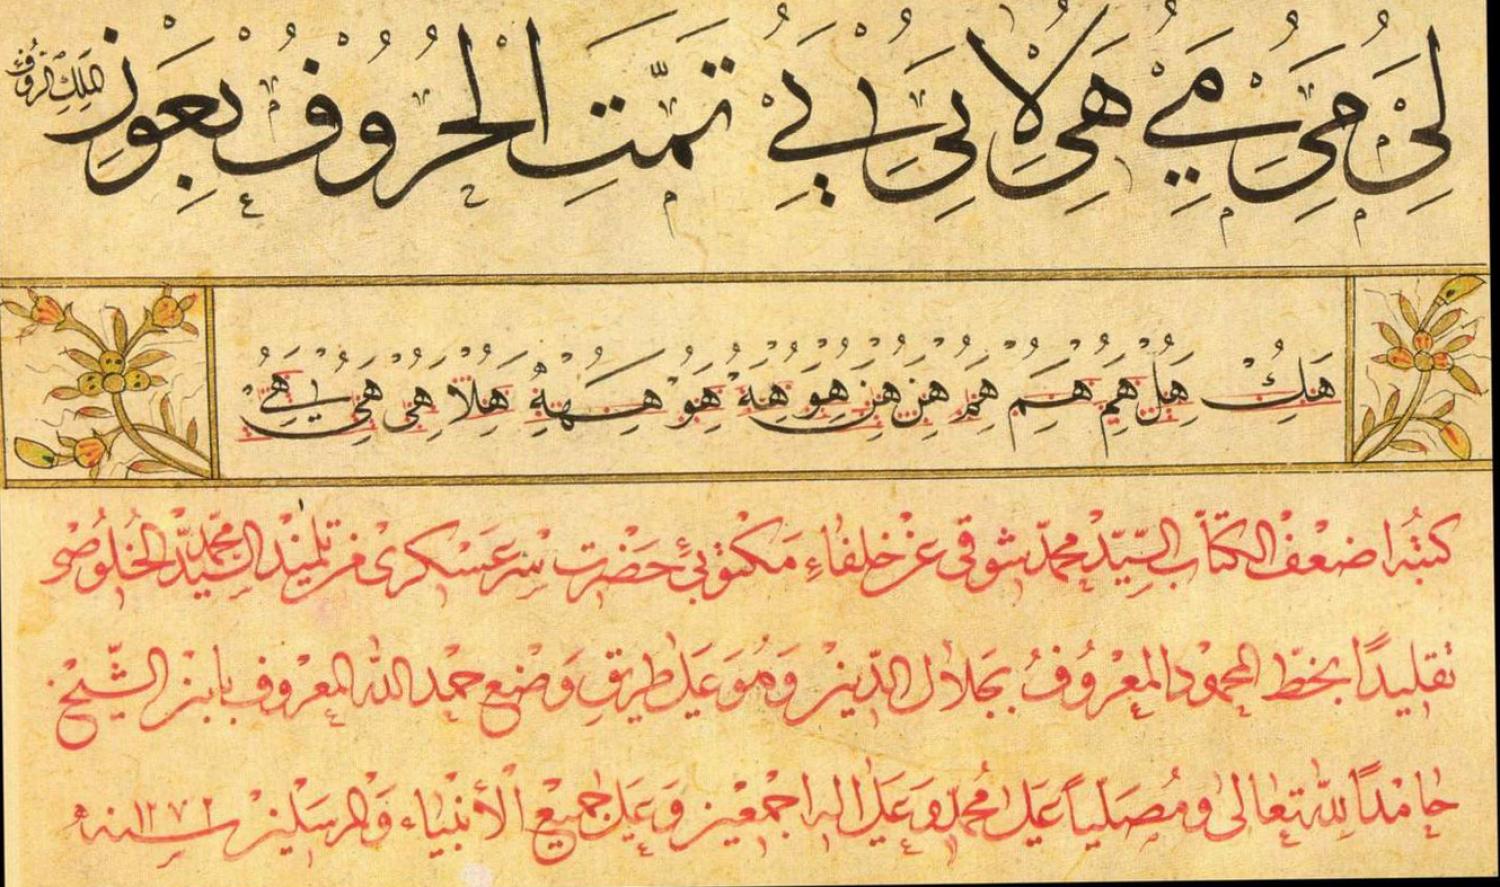 لى مى مي هى لا يى ى ي تمت الحروف بعون الملك الرؤف
هك هل هم هم هم هن هن هو هه هو ههه هلا هى هى هي
كتبه اضعف الكتاب السيد محمد شوقى عن خلفاء مكتوبئ حضرت سر عسكرى من تلميذ السيد محمد الخلوصى
تقليدا بخط المحمود المعروف بجلال الدين وهو على طريق وضع حمد الله المعروف بابن الشيخ
حامدا لله تعالى ومصليا على محمد وعلى اله اجمعين وعلى جميع الأنبياء والمرسلين سنه ١٢٧١